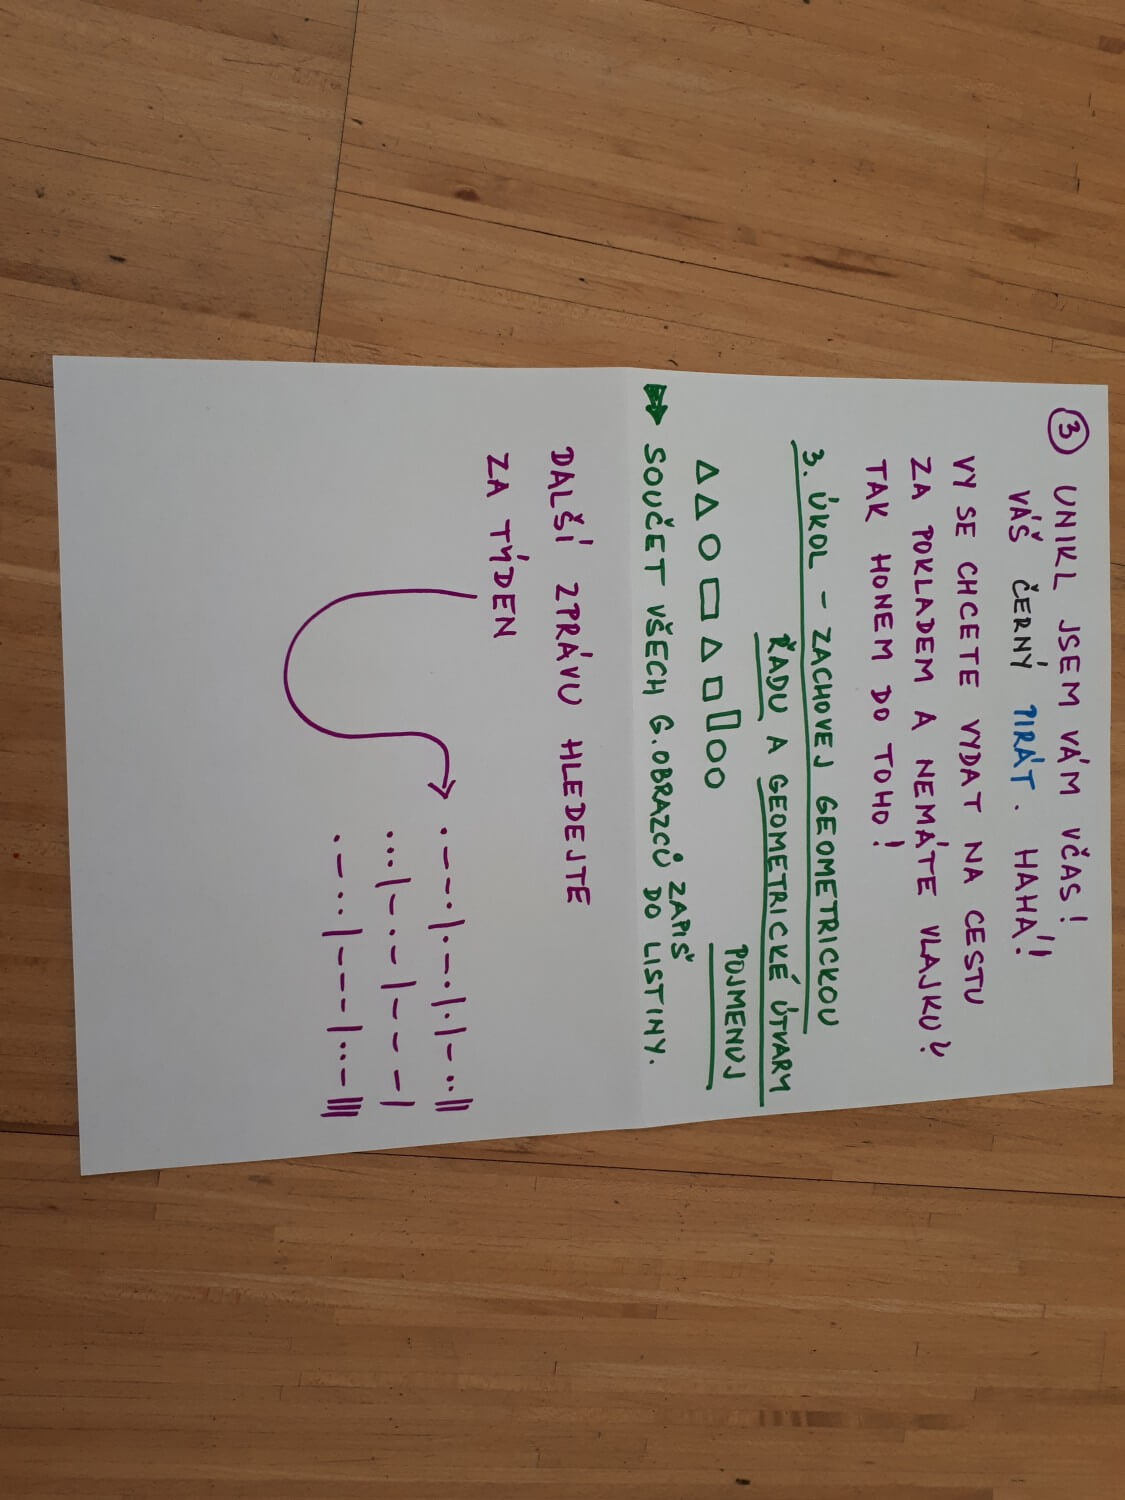 ③ UNIKL JSEM VÁM VČAS!
VÁŠ ČERNÝ PIRÁT. HAHA!!
VY SE CHCETE VYDAT NA CESTU
ZA POKLADEM A NEMÁTE VLAJKU?
TAK HONEM DO TOHO!
3. ÚKOL - ZACHOVEJ GEOMETRICKOU
ŘADU A GEOMETRICKÉ ÚTVARY
POJMENUJ
△ △ ○ □ △ □ ▯ ○ ○
ZAPIŠ
SOUČET VŠECH G. OBRAZCŮ DO LISTINY.
DALŠÍ ZPRÁVU HLEDEJTE
ZA TÝDEN
.--.|.-.|.|-..||
...|-.--|---|
.-..|---|..-|||